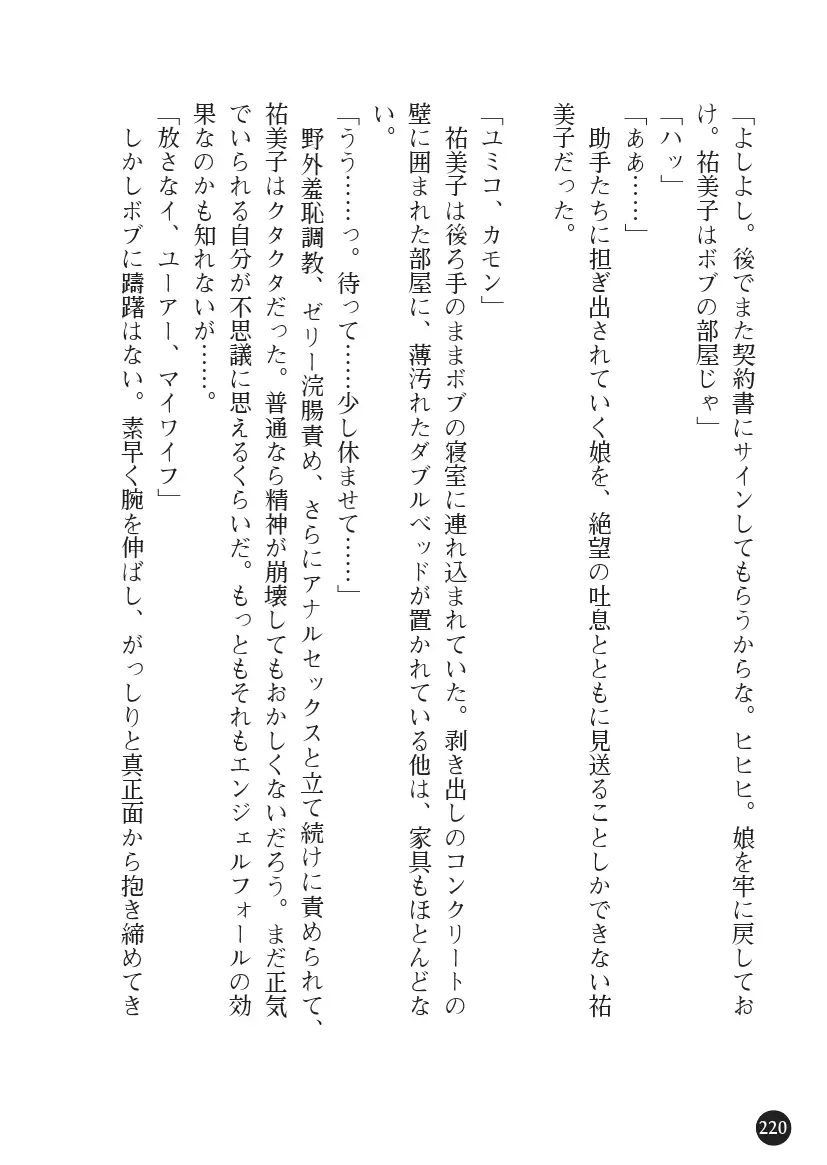 「よしよし。後でまた契約書にサインしてもらうからな。ヒヒヒ。娘を牢に戻してお
け。祐美子はボブの部屋じゃ」
「ハッ」
「ああ……」
助手たちに担ぎ出されていく娘を、絶望の吐息とともに見送ることしかできない祐
美子だった。
「ユミコ、カモン」
祐美子は後ろ手のままボブの寝室に連れ込まれていた。剥き出しのコンクリートの
壁に囲まれた部屋に、薄汚れたダブルベッドが置かれている他は、家具もほとんどな
い。
「うう……っ。待って……少し休ませて……」
野外羞恥調教、ゼリー浣腸責め、さらにアナルセックスと立て続けに責められて、
祐美子はクタクタだった。普通なら精神が崩壊してもおかしくないだろう。まだ正気
でいられる自分が不思議に思えるくらいだ。もっともそれもエンジェルフォールの効
果なのかも知れないが……。
「放さなイ、ユーアー、マイワイフ」
しかしボブに躊躇はない。素早く腕を伸ばし、がっしりと真正面から抱き締めてき
220